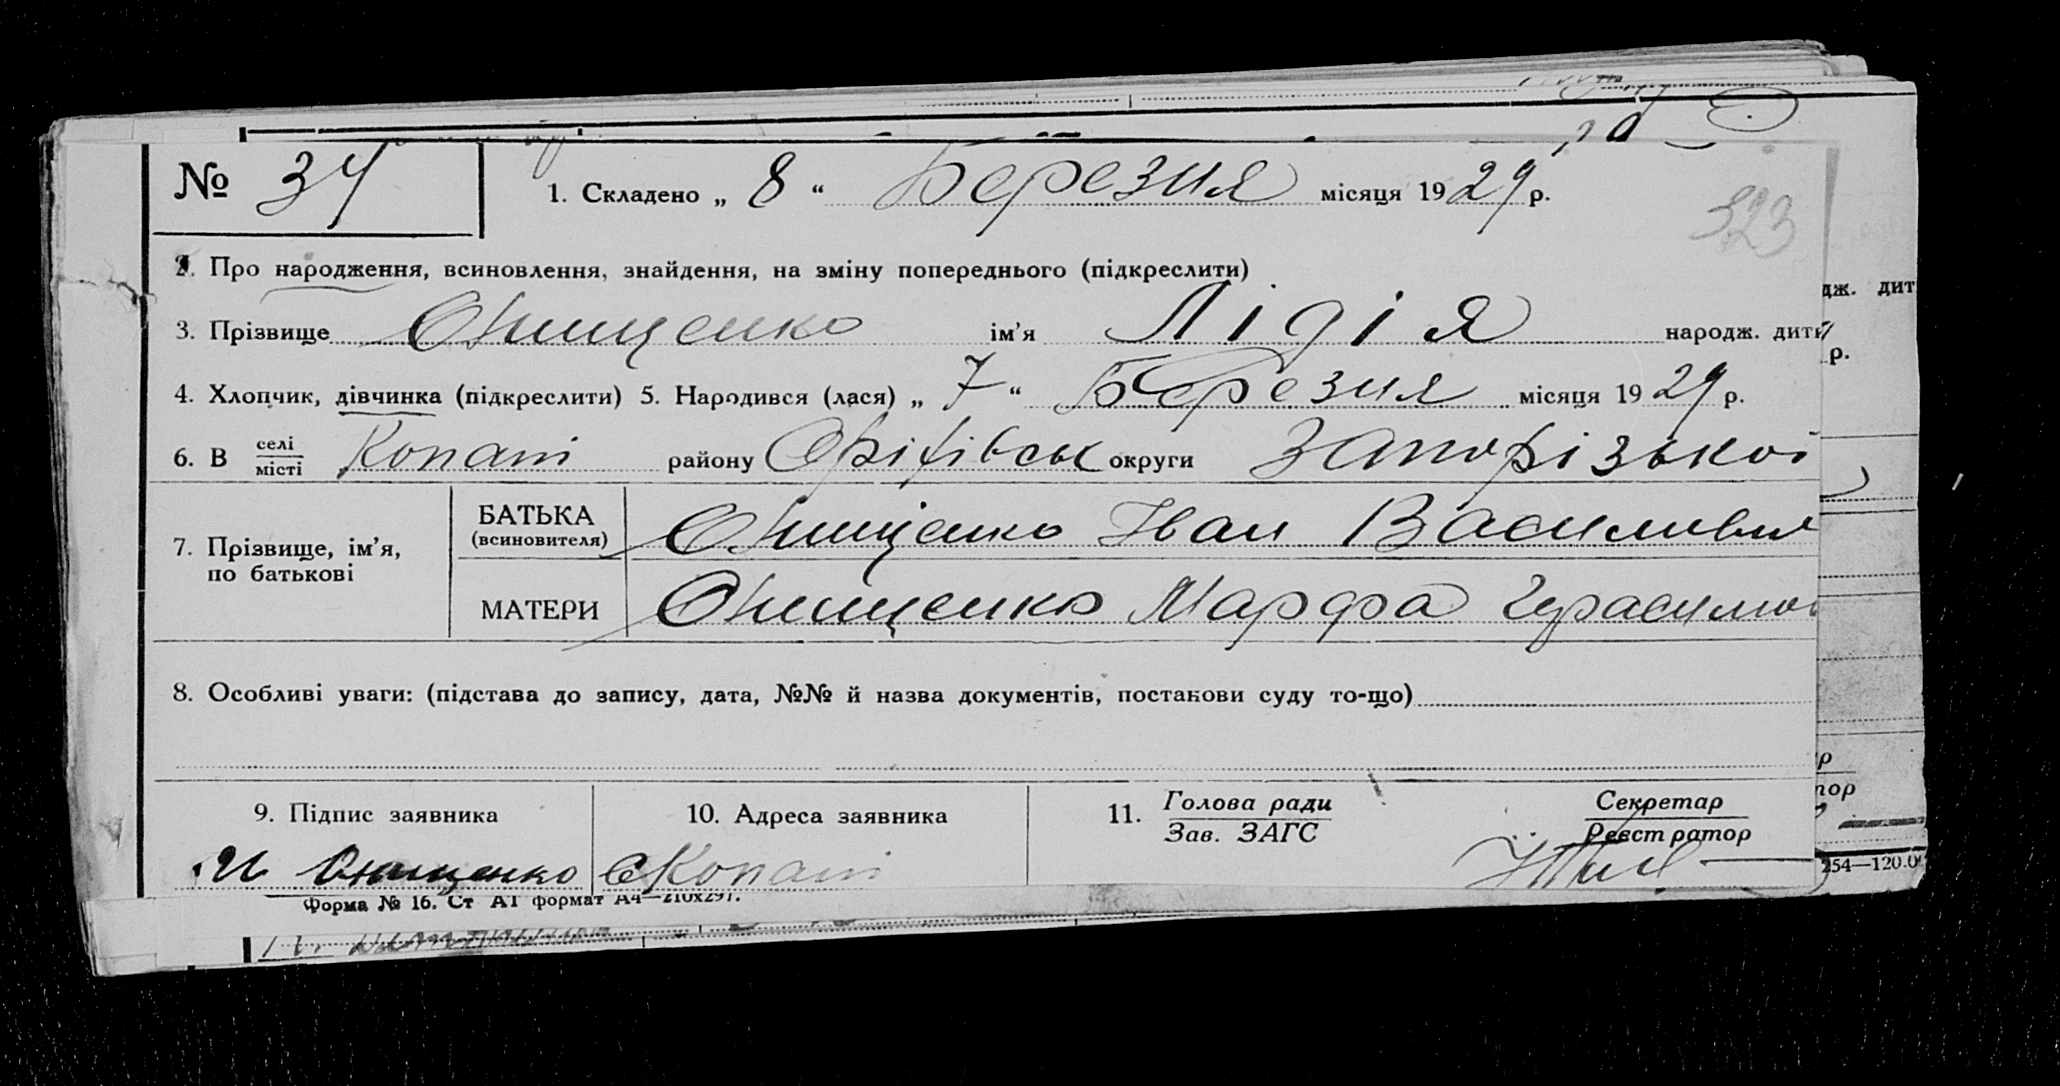 № 34 1. Складено „ 8 “ Березня місяця 1929 р.
323
2. Про народження, всиновлення, знайдення, на зміну попереднього (підкреслити)
3. Прізвище Онищенко ім’я Лідія народж. дити
4. Хлопчик, дівчинка (підкреслити) 5. Народився (лася) „ 7 “ Березня місяця 1929 р.
6. В селі/місті Копані району Оріхівськ округи Запорізької
7. Прізвище, ім’я, по батькові
БАТЬКА (всиновителя) Онищенко Іван Василивич
МАТЕРИ Онищенко Марфа Герасимов
8. Особливі уваги: (підстава до запису, дата, №№ й назва документів, постанови суду то-що)
9. Підпис заявника 10. Адреса заявника 11. Голова ради Секретар
Зав. ЗАГС Реєстратор
И Онищенко с Копані
Форма № 16. Ст А1 формат А4—210х297.
дж. дит
р.
р
тор
254—120.0